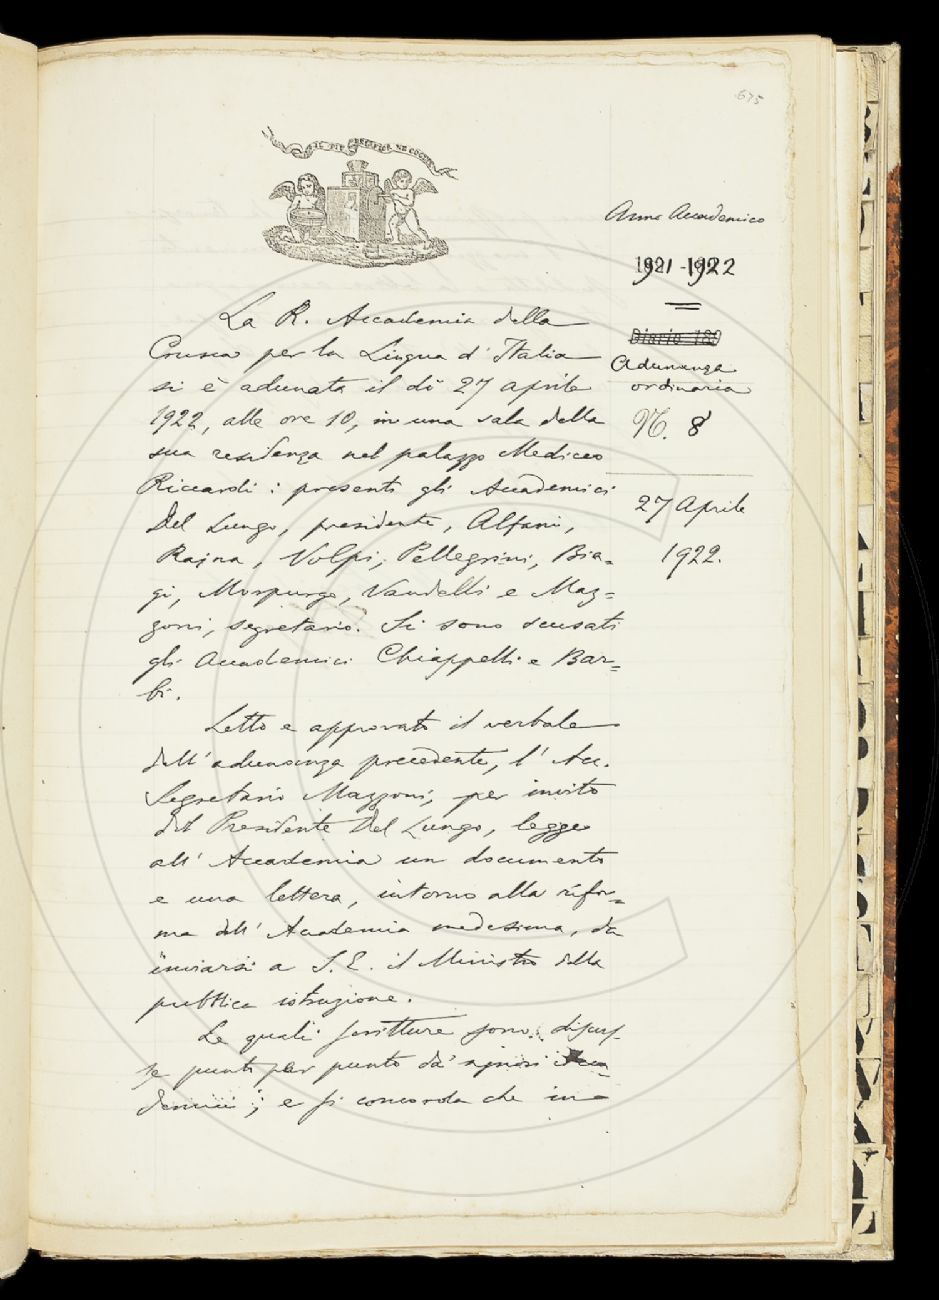 675
IL PIÙ BEL FIOR NE COGLIE
Anno Accademico
1921-1922
Diario 189
Adunanza
ordinaria
N. 8
27 Aprile
1922.
La R. Accademia della
Crusca per la Lingua d'Italia
si è adunata il dì 27 aprile
1922, alle ore 10, in una sala della
sua residenza nel palazzo Mediceo
Riccardi: presenti gli Accademici
Del Lungo, presidente, Alfani,
Rajna, Volpi, Pellegrini, Bia-
gi, Morpurgo, Vandelli e Maz=
zoni, segretario. Si sono scusati
gli Accademici Chiappelli e Bar=
bi.
Letto e approvato il verbale
dell'adunanza precedente, l'Acc.
Segretario Mazzoni, per invito
del Presidente Del Lungo, legge
all'Accademia un documento
e una lettera, intorno alla rifor=
ma dell'Accademia medesima, da
inviarsi a S. E. il Ministro della
pubblica istruzione.
Le quali scritture sono discus-
se punto per punto da' signori Acca-
demici; e si concorda che in